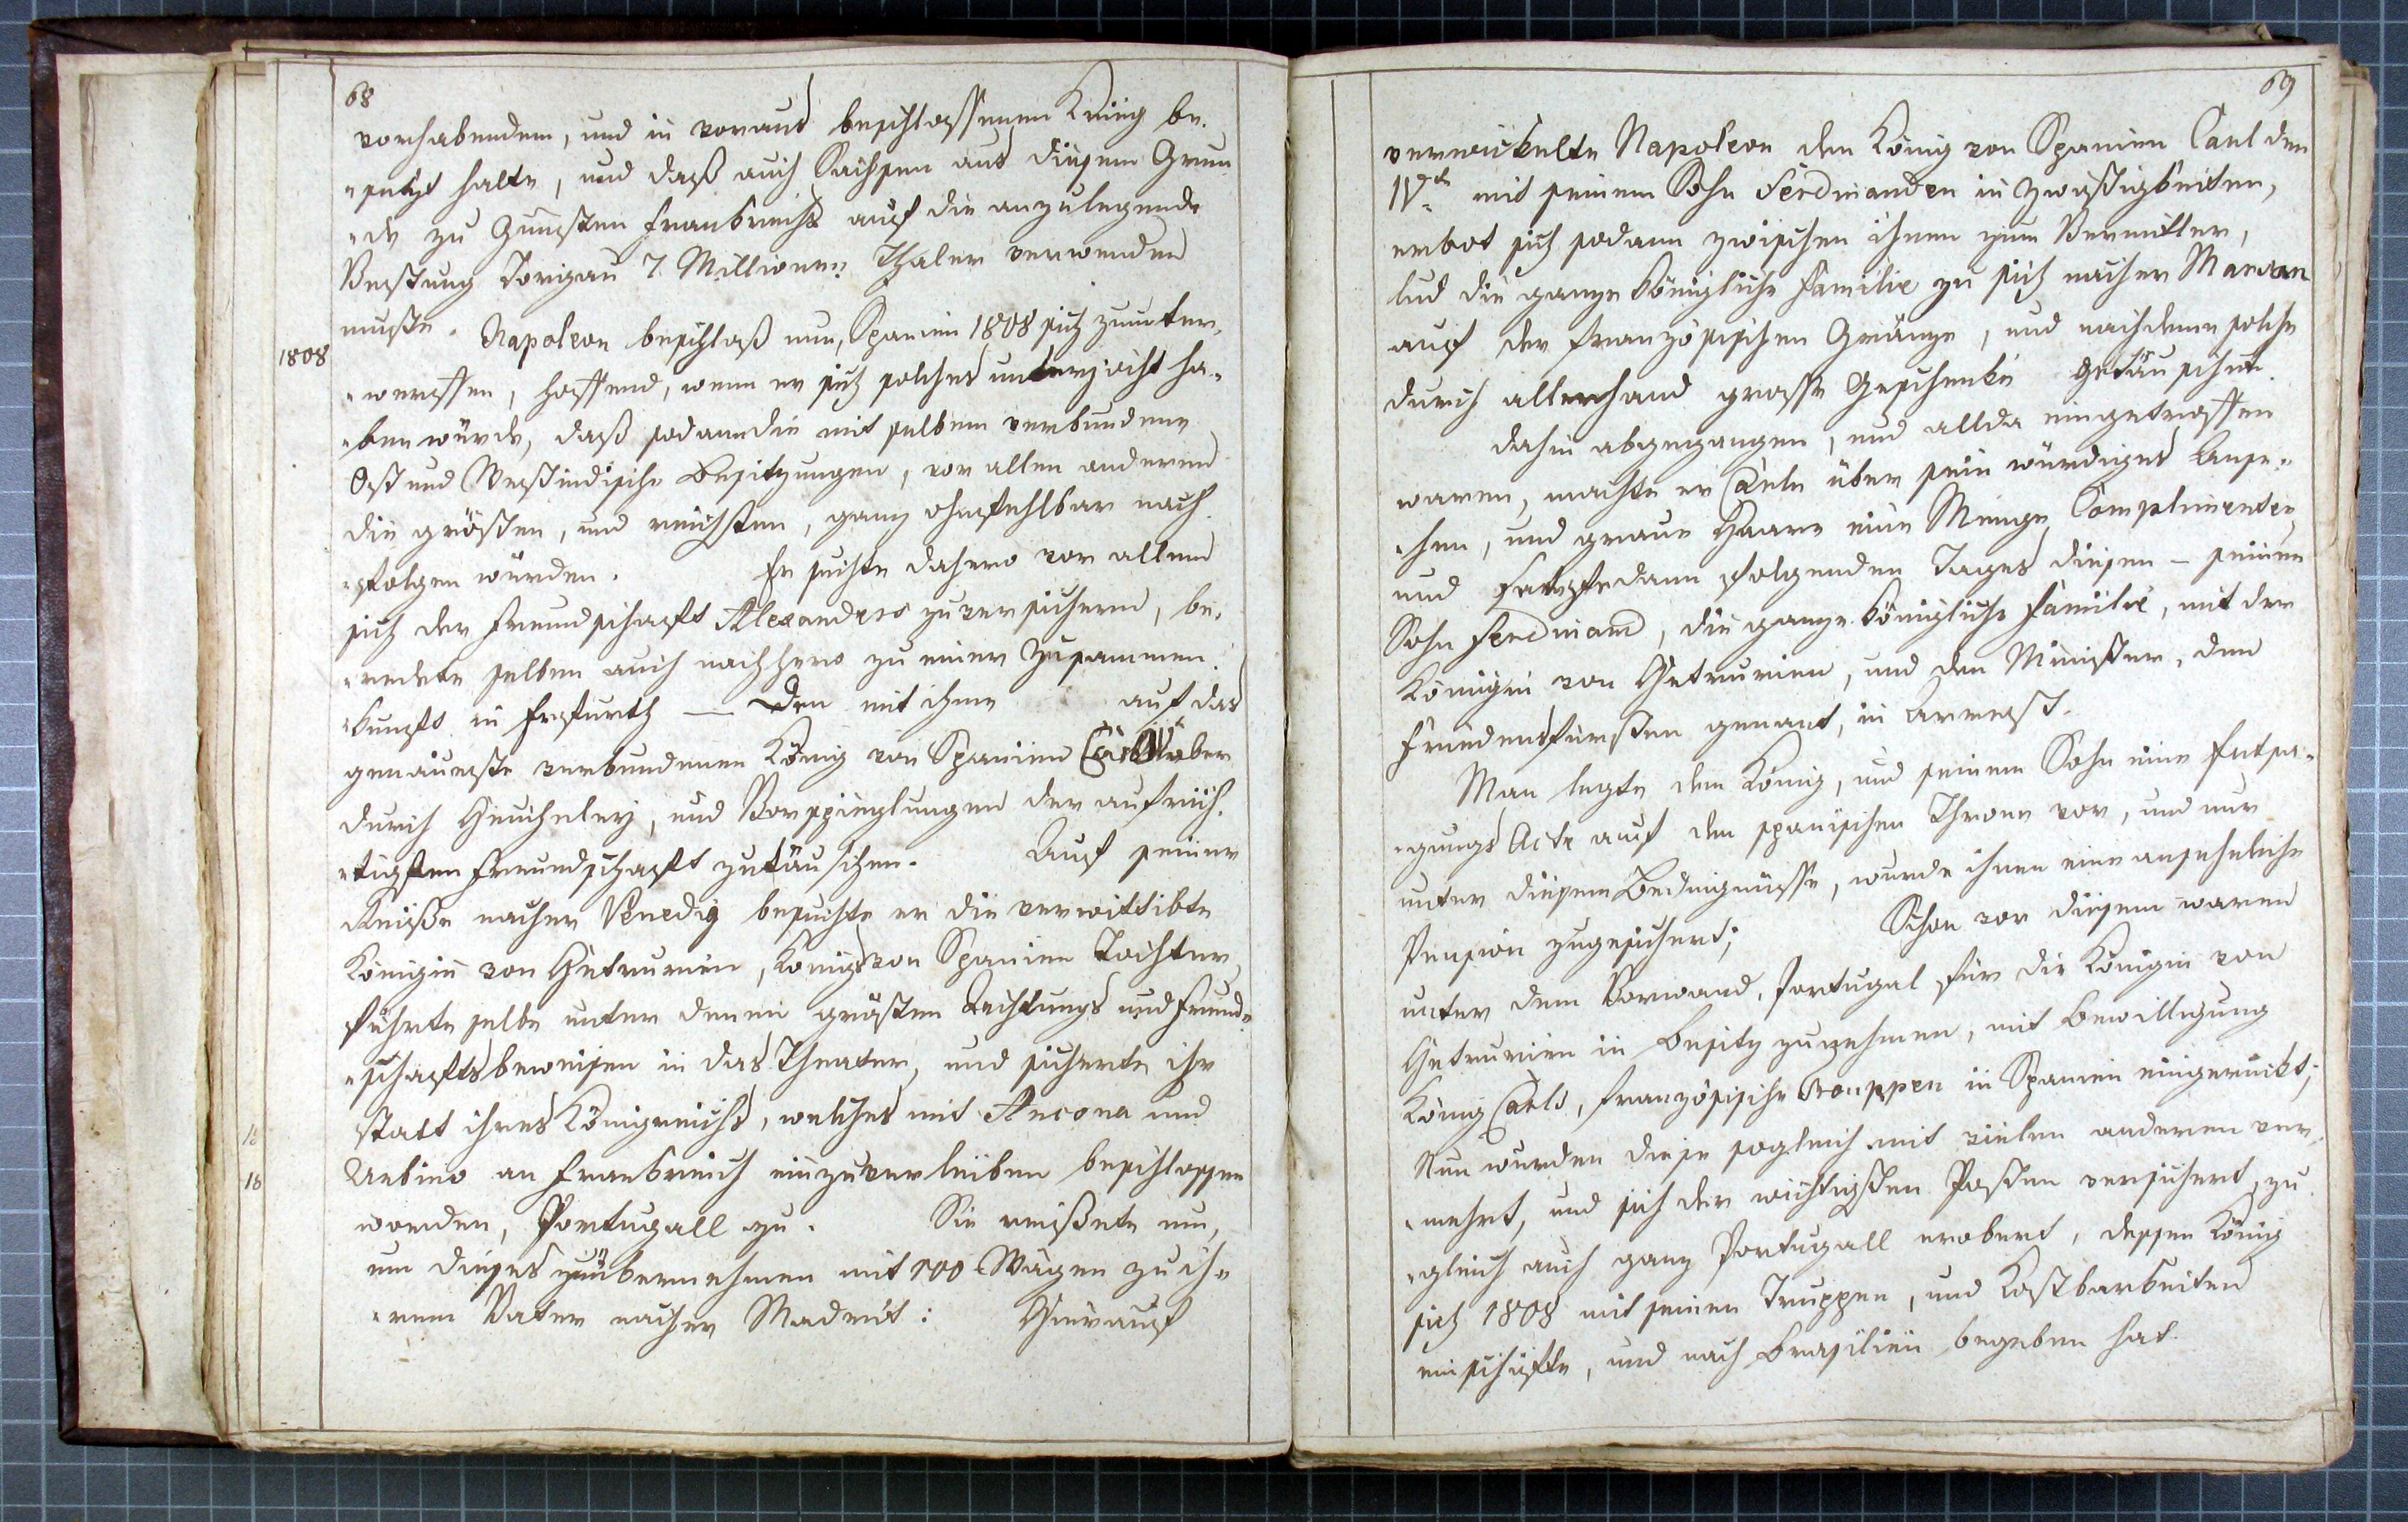 68
vorhabendem, und in voraus beschlossenen Krieg be-
"setzt halte, und daß auch Sachsen aus diesem Grun
"de zu Gunsten Frankreichs auf die anzulegende
Vestung Torgau 7 Millionen Thaler verwenden
mußte. Napoleon beschloß nun, Spanien 1808 sich zuunter-
1808
"werffen, hoffend, wenn er sich solches unterjocht ha-
"ben würde, daß sodann die mit selbem verbundene
Ost und Westindische Besitzungen, vor allen anderen
die größten, und reichsten, ganz ohnfehlbar nach
"folgen würden. Er suchte dahero vor allem
sich der Freundschaft Alexanders zu versicheren, be-
"redete selben auch nachhero zu einer Zusammen-
"kunft in Erfurth — den mit ihme auf das
genaueste verbundenen König von Spanien Carl aber
durch Heucheley, und Vorspieglungen der aufrich-
"tigsten Freundschaft zu täuschen. Auf seiner
Reiße nacher Venedig besuchte er die verwittibte
Königin von Hetrurien, Königs von Spanien Tochter
führte selbe unter denen grösten Achtungs und Freund-
"schaftsbeweisen in das Theater, und sicherte ihr
statt ihres Königreichs, welches mit Ancona und
18
Urbino an Frankreich einzuverleiben beschlossen
18
worden, Portugall zu. Sie reißete nun,
um dieses zu übernehmen mit 100 Wägen zu ih-
"rem Vater nacher Madrit: Hierauf
69
verwickelte Napoleon den König von Spanien Carl den
IVt. mit seinem Sohn Ferdinanden in Zwistigkeiten,
erbot sich sodann zwischen ihnen zum Vermittler,
lud die ganze Königliche Familie zu sich nacher
auf der französischen Gränze, und nachdeme solche
durch allerhand grosse Geschenke getäuschet
dahin abgegangen, und allda eingetroffen
waren, machte er Carln über sein würdiges Anse-
"hen, und graue Haare eine Menge Complimenten,
und sezte dann folgenden Tages diesen – seinen
Sohn Ferdinand, die ganze Königliche Familie, mit der
Königin von Hetrurien, und den Minister, den
Friedensfürsten genant, in Arrest.
Man legte dem König, und seinem Sohn eine Entsa-
"gungs Acte auf den spanischen Throne vor, und nur
unter diesem Bedingnisse, wurde ihnen eine ansehnliche
Pension zugesichert; Schon vor diesem waren
unter dem Vorwand, Portugal für die Königin von
Hetrurien in Besitz zu nehmen, mit Bewilligung
König Carls, französische Trouppen in Spanien eingerückt;
Nun wurden diese sogleich mit vielen anderen ver
"mehrt, und sich der wichtigsten Posten versichert, zu
"gleich auch ganz Portugall erobert, dessen König
sich 1808 mit seinen Truppen, und Kostbarkeiten
einschiffte, und nach Brasilien begeben hat.